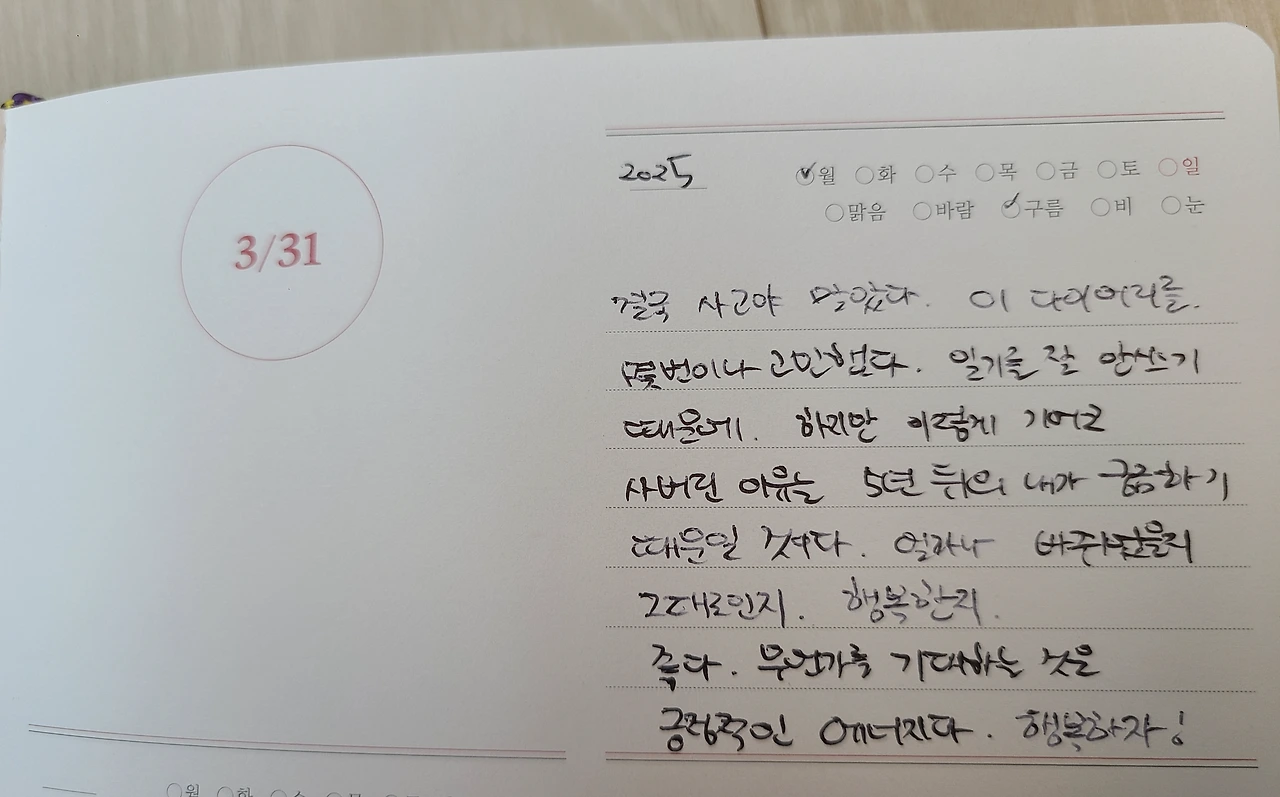 3/31
2025
월 화 수 목 금 토 일
맑음 바람 구름 비 눈
결국 사고야 말았다. 이 다이어리를.
몇번이나 고민했다. 일기를 잘 안쓰기
때문에. 하지만 이렇게 기어코
사버린 이유는 5년 뒤의 내가 궁금하기
때문일 것이다. 얼마나 바뀌었을지
그대로인지. 행복한지.
좋다. 무언가를 기대하는 것은
긍정적인 에너지다. 행복하자!
월 화 수 목